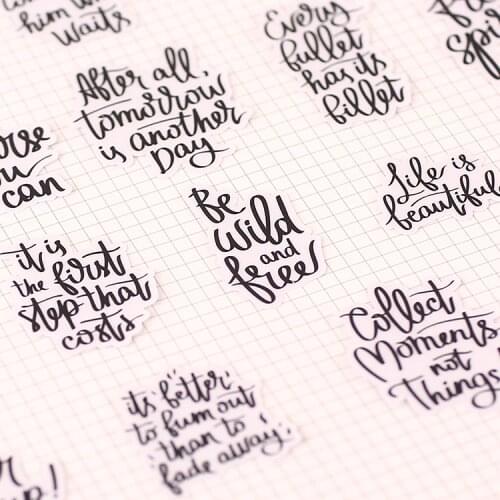 him who
Waits
After all,
tomorrow
is another
Day
Every
bullet
has its
billet
can
Be
Wild
and
free
Life is
beautiful
it is
the first
step that
costs
Collect
Moments
not
Things
it's better
to burn out
than to
fade away